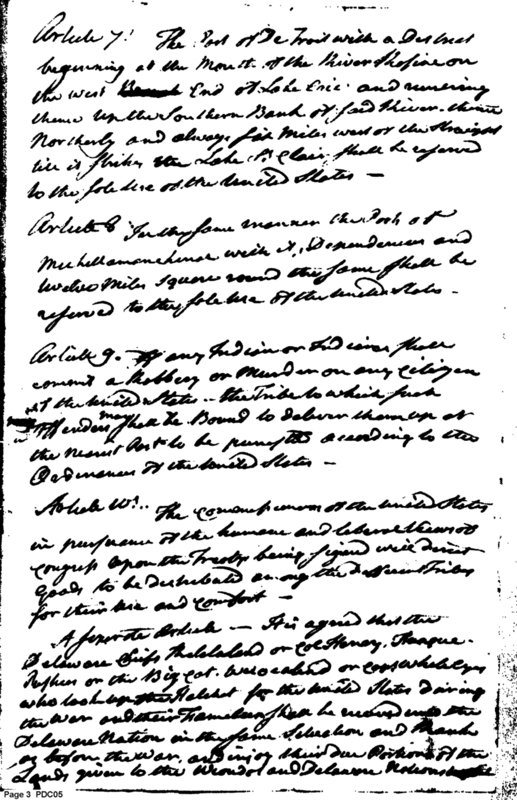 Article 7: The Post of De Troit with a District
beginning at the Mouth of the River Rosine on
the west End of Lake Erie and running
thence up the Southern Bank of said River thence
Northerly and always six Miles west of the Straight
till it strikes the Lake St. Clair shall be reserved
to the sole Use of the United States —
Article 8 In the same manner the Post at
with its Dependences and
twelve Miles Square round the same shall be
reserved to the sole Use of the United States —
Article 9. If any Indian or Indians shall
commit a Robbery or Murder on any Citizen
of the United States the Tribe to which such
offenders may shall be Bound to deliver them up at
the nearest Post to be according to the
Ordinances of the United States —
Article 10: The Commissioners of the United States
in pursuance of the humane and liberal Views of
Congress upon the Treaty being signed will direct
goods to be distributed among the different Tribes
for their Use and Comfort —
A seperate Article — It is agreed that the
Delaware Chiefs or Col Henry,
or the Big Cat, or Capt White Eyes
who took up the Hatchet for the United States during
the War and their Families shall be received into the
Delaware Nation in the same Situation and Rank
as before the War, and enjoy their due Portions of the
Lands given to the and Delaware Nations
Page 3 PDC05